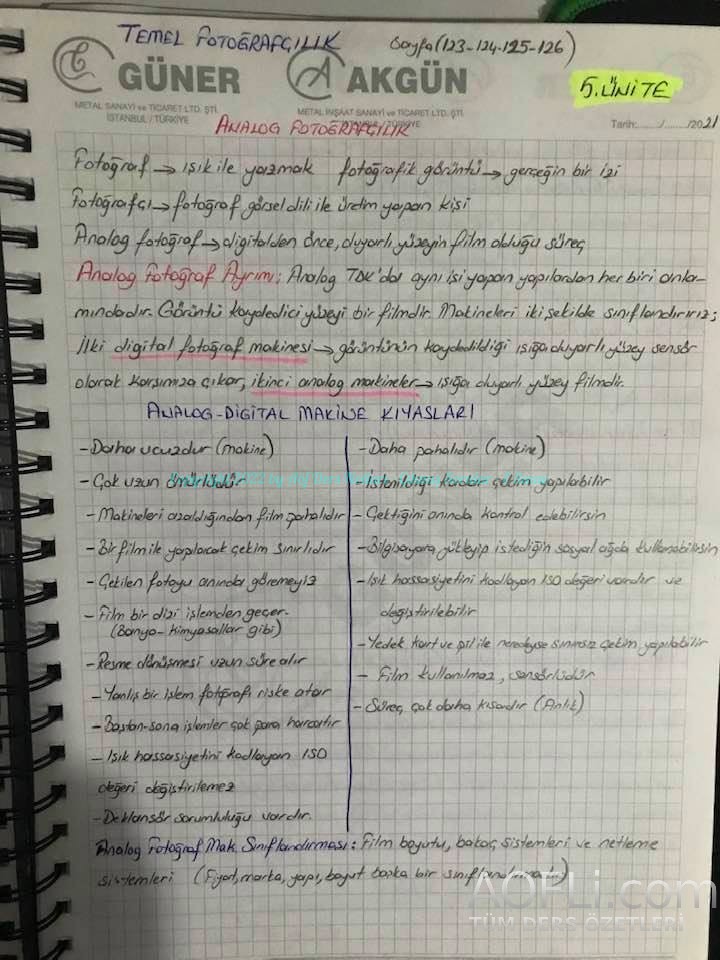 TEMEL FOTOĞRAFÇILIK Sayfa (123-124-125-126)
GÜNER AKGÜN
5. ÜNİTE
METAL SANAYİ ve TİCARET LTD. ŞTİ.
İSTANBUL / TÜRKİYE
METAL İNŞAAT SANAYİ ve TİCARET LTD. ŞTİ.
İSTANBUL / TÜRKİYE
ANALOG FOTOĞRAFÇILIK
Tarih:....../....../2021
Fotoğraf → ışık ile yazmak fotoğrafik görüntü → gerçeğin bir izi
Fotoğrafçı → fotoğraf görsel dili ile üretim yapan kişi
Analog fotoğraf → digitalden önce, duyarlı yüzeyin film olduğu süreç
Analog Fotoğraf Ayrımı: Analog TDK'da aynı işi yapan yapılardan her biri anla-
mındadır. Görüntü kaydedici yüzeyi bir filmdir. Makineleri iki şekilde sınıflandırırız;
İlki digital fotoğraf makinesi → görüntünün kaydedildiği ışığa duyarlı yüzey sensör
olarak karşımıza çıkar, ikinci analog makineler → ışığa duyarlı yüzey filmdir.
ANALOG-DIGITAL MAKİNE KIYASLARI
- Daha ucuzdur (makine)
- Çok uzun ömürlüdür
- Makineleri azaldığından film pahalıdır
- Bir film ile yapılacak çekim sınırlıdır
- Çekilen fotoyu anında göremeyiz
- Film bir dizi işlemden geçer.
(Banyo - kimyasallar gibi)
- Resme dönüşmesi uzun süre alır
- Yanlış bir işlem fotoğrafı riske atar
- Baştan-sona işlemler çok para harcatır
- Işık hassasiyetini kodlayan ISO
değeri değiştirilemez
- Deklanşör sorumluluğu vardır.
- Daha pahalıdır (makine)
- İstenildiği kadar çekim yapılabilir
- Çektiğini anında kontrol edebilirsin
- Bilgisayara yükleyip istediğin sosyal ağda kullanabilirsin
- Işık hassasiyetini kodlayan ISO değeri vardır ve
değiştirilebilir
- Yedek kart ve pil ile neredeyse sınırsız çekim yapılabilir
- Film kullanılmaz, sensörlüdür
- Süreç çok daha kısadır (Anlık)
Analog Fotoğraf Mak. Sınıflandırması: Film boyutu, bakaç sistemleri ve netleme
sistemleri (Fiyat, marka, yapı, boyut başka bir sınıflandırmadır)
AOFLi.com
TÜM DERS ÖZETLERİ